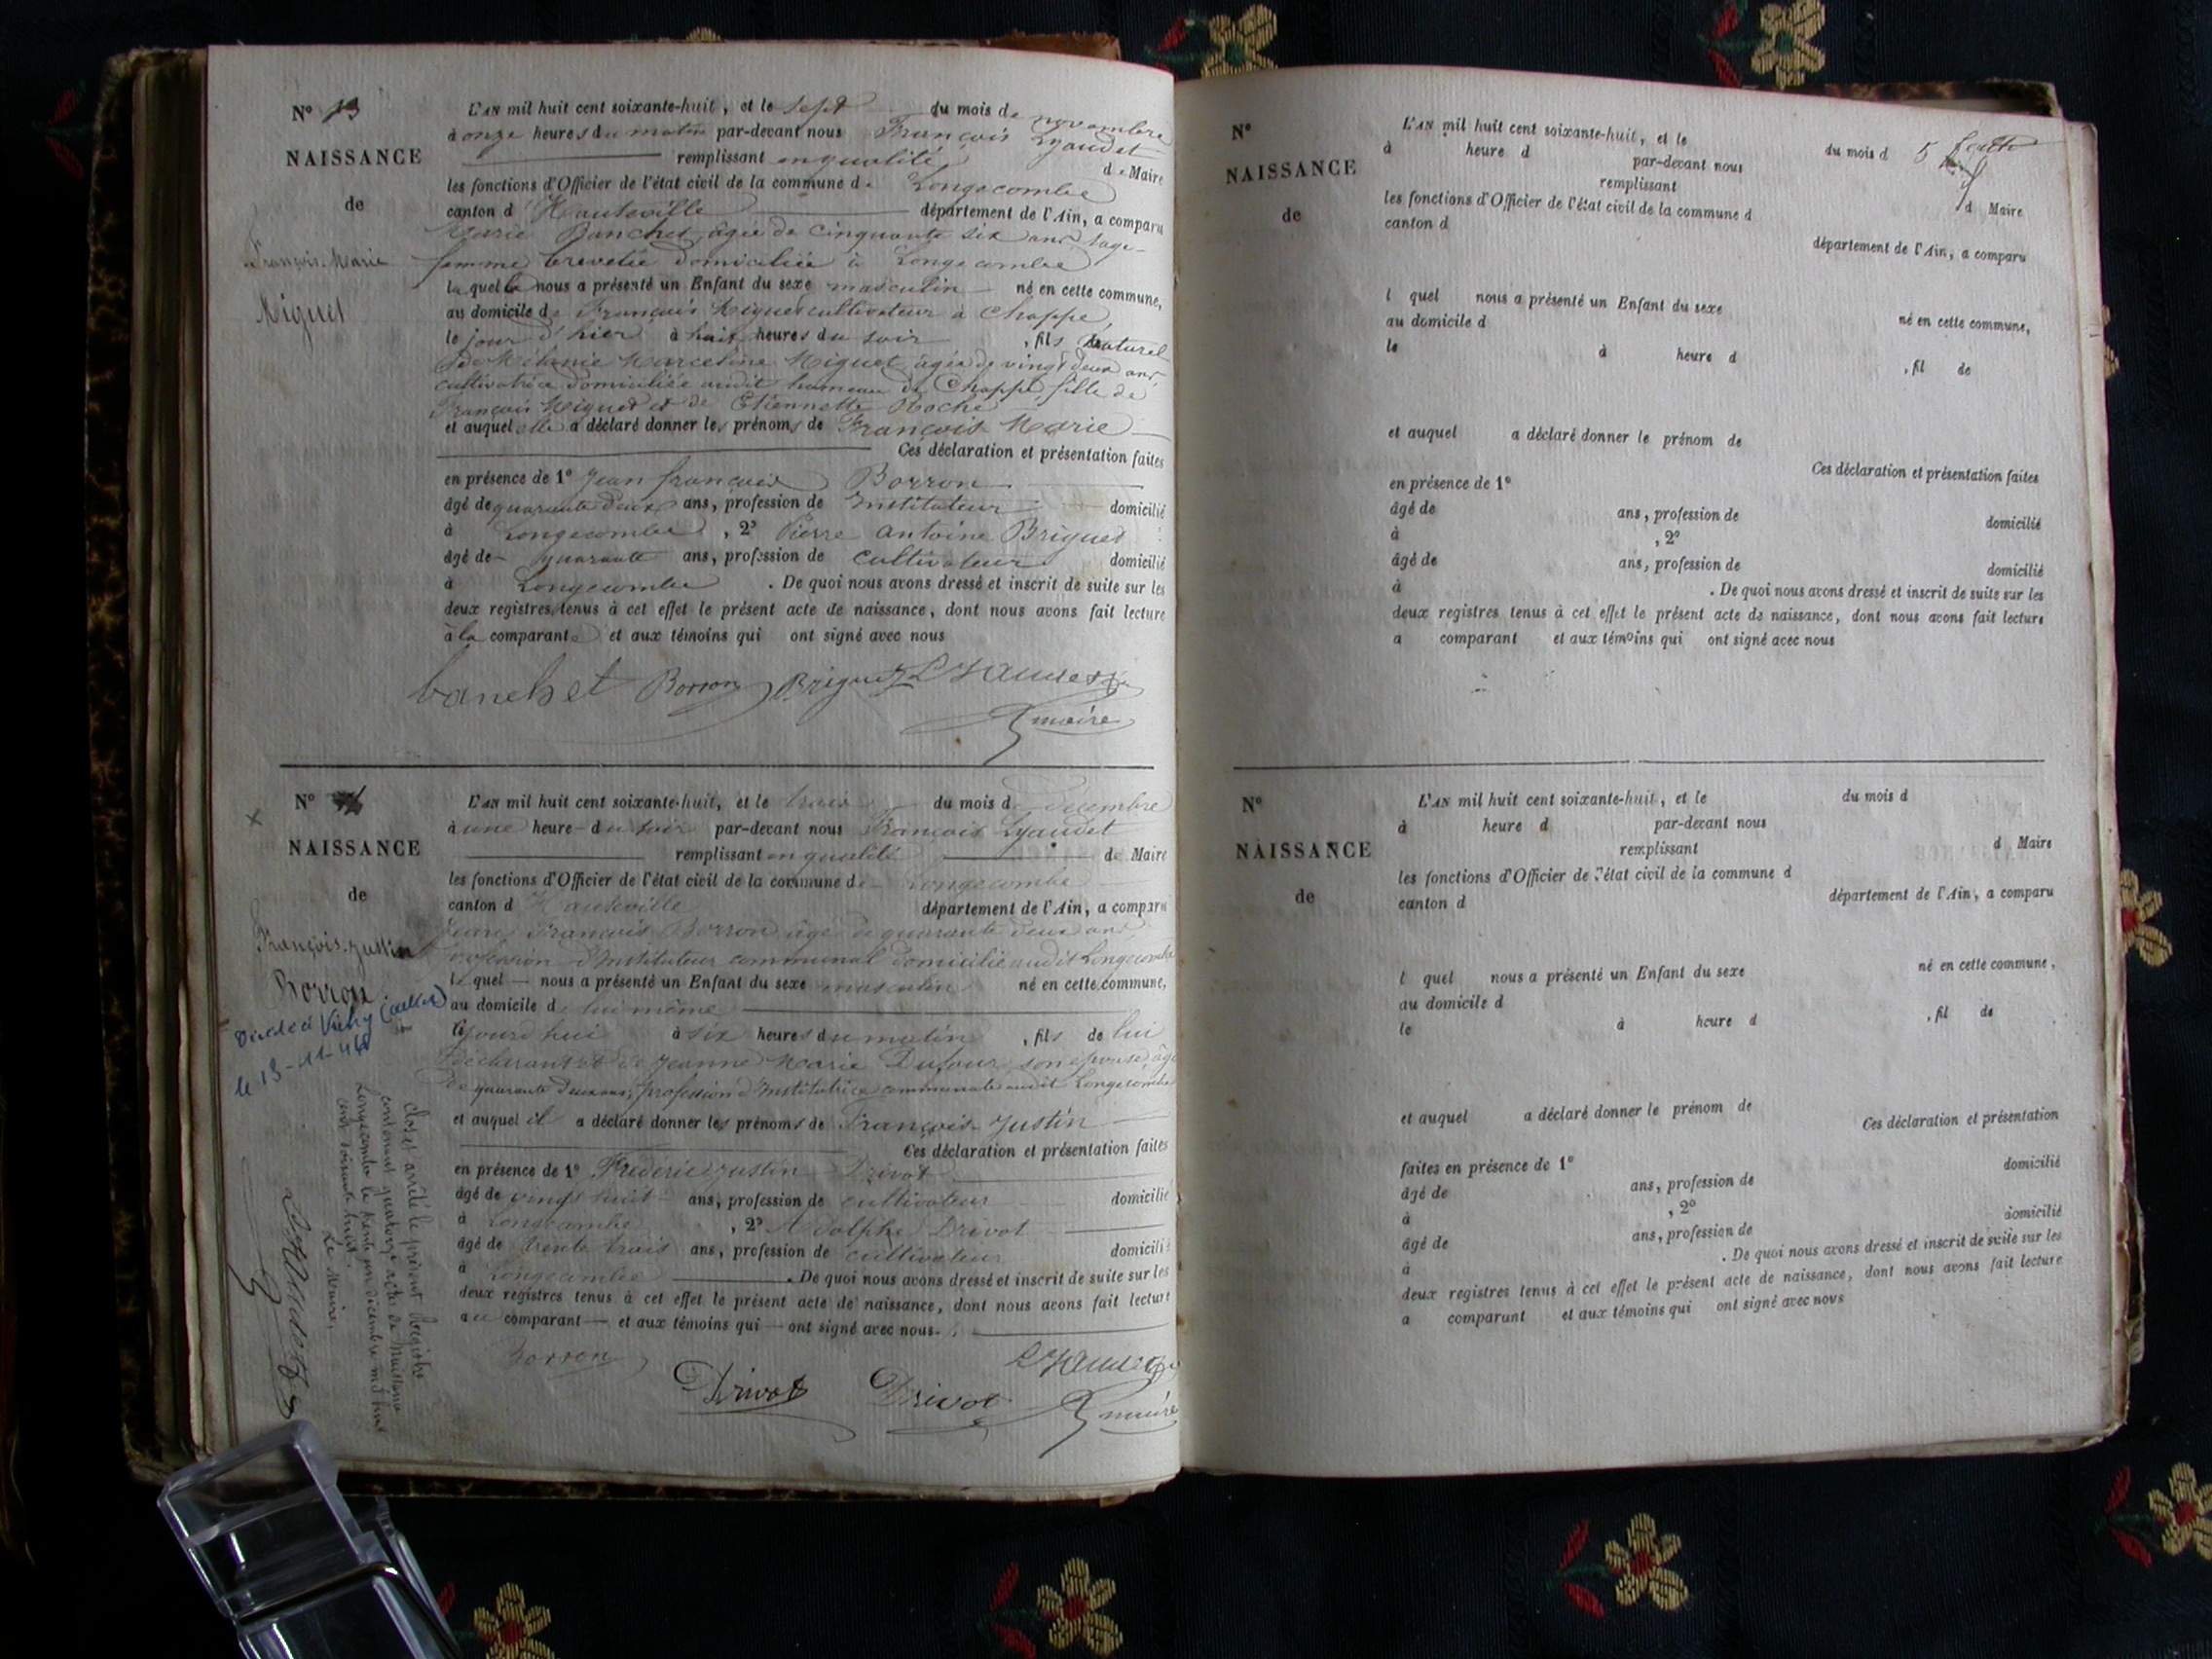 N° 13
NAISSANCE
de
François-Marie
Miguet
L'AN mil huit cent soixante-huit, et le sept du mois de novembre
à onze heures du matin par-devant nous François Lyaudet
remplissant en qualité de Maire
les fonctions d'Officier de l'état civil de la commune de Longecombe
canton d'Hauteville département de l'Ain, a comparu
Marie Banchet âgée de cinquante six ans sage-
femme brevetée domiciliée à Longecombe
laquelle nous a présenté un Enfant du sexe masculin né en cette commune,
au domicile de François Miguet cultivateur à Chappe,
le jour d'hier à huit heures du soir, fils naturel
de Mélanie Marceline Miguet âgée de vingt deux ans,
cultivatrice domiciliée audit hameau de Chappe, fille de
François Miguet et de Etiennette Roche
et auquel elle a déclaré donner les prénoms de François Marie
Ces déclaration et présentation faites
en présence de 1° Jean françois Borron
âgé de quarante deux ans, profession de Instituteur domicilié
à Longecombe, 2° Pierre Antoine Briguet
âgé de quarante ans, profession de cultivateur domicilié
à Longecombe. De quoi nous avons dressé et inscrit de suite sur les
deux registres tenus à cet effet le présent acte de naissance, dont nous avons fait lecture
à la comparante et aux témoins qui ont signé avec nous
banchet Borron Briguet Lyaudet
maire
N° 14
NAISSANCE
de
François-Justin
Borron
Décédé à Vichy (allier)
le 13-11-44
L'AN mil huit cent soixante-huit, et le trois du mois de Décembre
à une heure du soir par-devant nous François Lyaudet
remplissant en qualité de Maire
les fonctions d'Officier de l'état civil de la commune de Longecombe
canton d'Hauteville département de l'Ain, a comparu
Jean François Borron âgé de quarante deux ans,
profession d'Instituteur communal domicilié audit Longecombe
lequel nous a présenté un Enfant du sexe masculin né en cette commune,
au domicile de lui même
le jourd'hui à six heures du matin, fils de lui
Déclarant et de Jeanne Marie Dufour, son épouse, âgée
de quarante deux ans, profession d'Institutrice communale audit Longecombe
et auquel il a déclaré donner les prénoms de François-Justin
Ces déclaration et présentation faites
en présence de 1° Frédéric Justin Drivot
âgé de vingt huit ans, profession de cultivateur domicilié
à Longecombe, 2° Adolphe Drivot
âgé de trente trois ans, profession de cultivateur domicilié
à Longecombe. De quoi nous avons dressé et inscrit de suite sur les
deux registres tenus à cet effet le présent acte de naissance, dont nous avons fait lecture
au comparant et aux témoins qui ont signé avec nous.
Borron Drivot Drivot Lyaudet
maire
Clos et arrêté le présent Registre
contenant quatorze actes de naissance
Longecombe le trente un décembre mil huit
cent soixante huit.
Le Maire,
Lyaudet
N°
NAISSANCE
de
L'AN mil huit cent soixante-huit, et le du mois d 5
à heure d par-devant nous
remplissant d Maire
les fonctions d'Officier de l'état civil de la commune d
canton d département de l'Ain, a comparu
l quel nous a présenté un Enfant du sexe né en cette commune,
au domicile d
le à heure d , fil de
et auquel a déclaré donner le prénom de
Ces déclaration et présentation faites
en présence de 1°
âgé de ans, profession de domicilié
à , 2°
âgé de ans, profession de domicilié
à . De quoi nous avons dressé et inscrit de suite sur les
deux registres tenus à cet effet le présent acte de naissance, dont nous avons fait lecture
a comparant et aux témoins qui ont signé avec nous
N°
NAISSANCE
de
L'AN mil huit cent soixante-huit, et le du mois d
à heure d par-devant nous
remplissant d Maire
les fonctions d'Officier de l'état civil de la commune d
canton d département de l'Ain, a comparu
l quel nous a présenté un Enfant du sexe né en cette commune,
au domicile d
le à heure d , fil de
et auquel a déclaré donner le prénom de
Ces déclaration et présentation
faites en présence de 1° domicilié
âgé de ans, profession de
à , 2° domicilié
âgé de ans, profession de
à . De quoi nous avons dressé et inscrit de suite sur les
deux registres tenus à cet effet le présent acte de naissance, dont nous avons fait lecture
a comparant et aux témoins qui ont signé avec nous